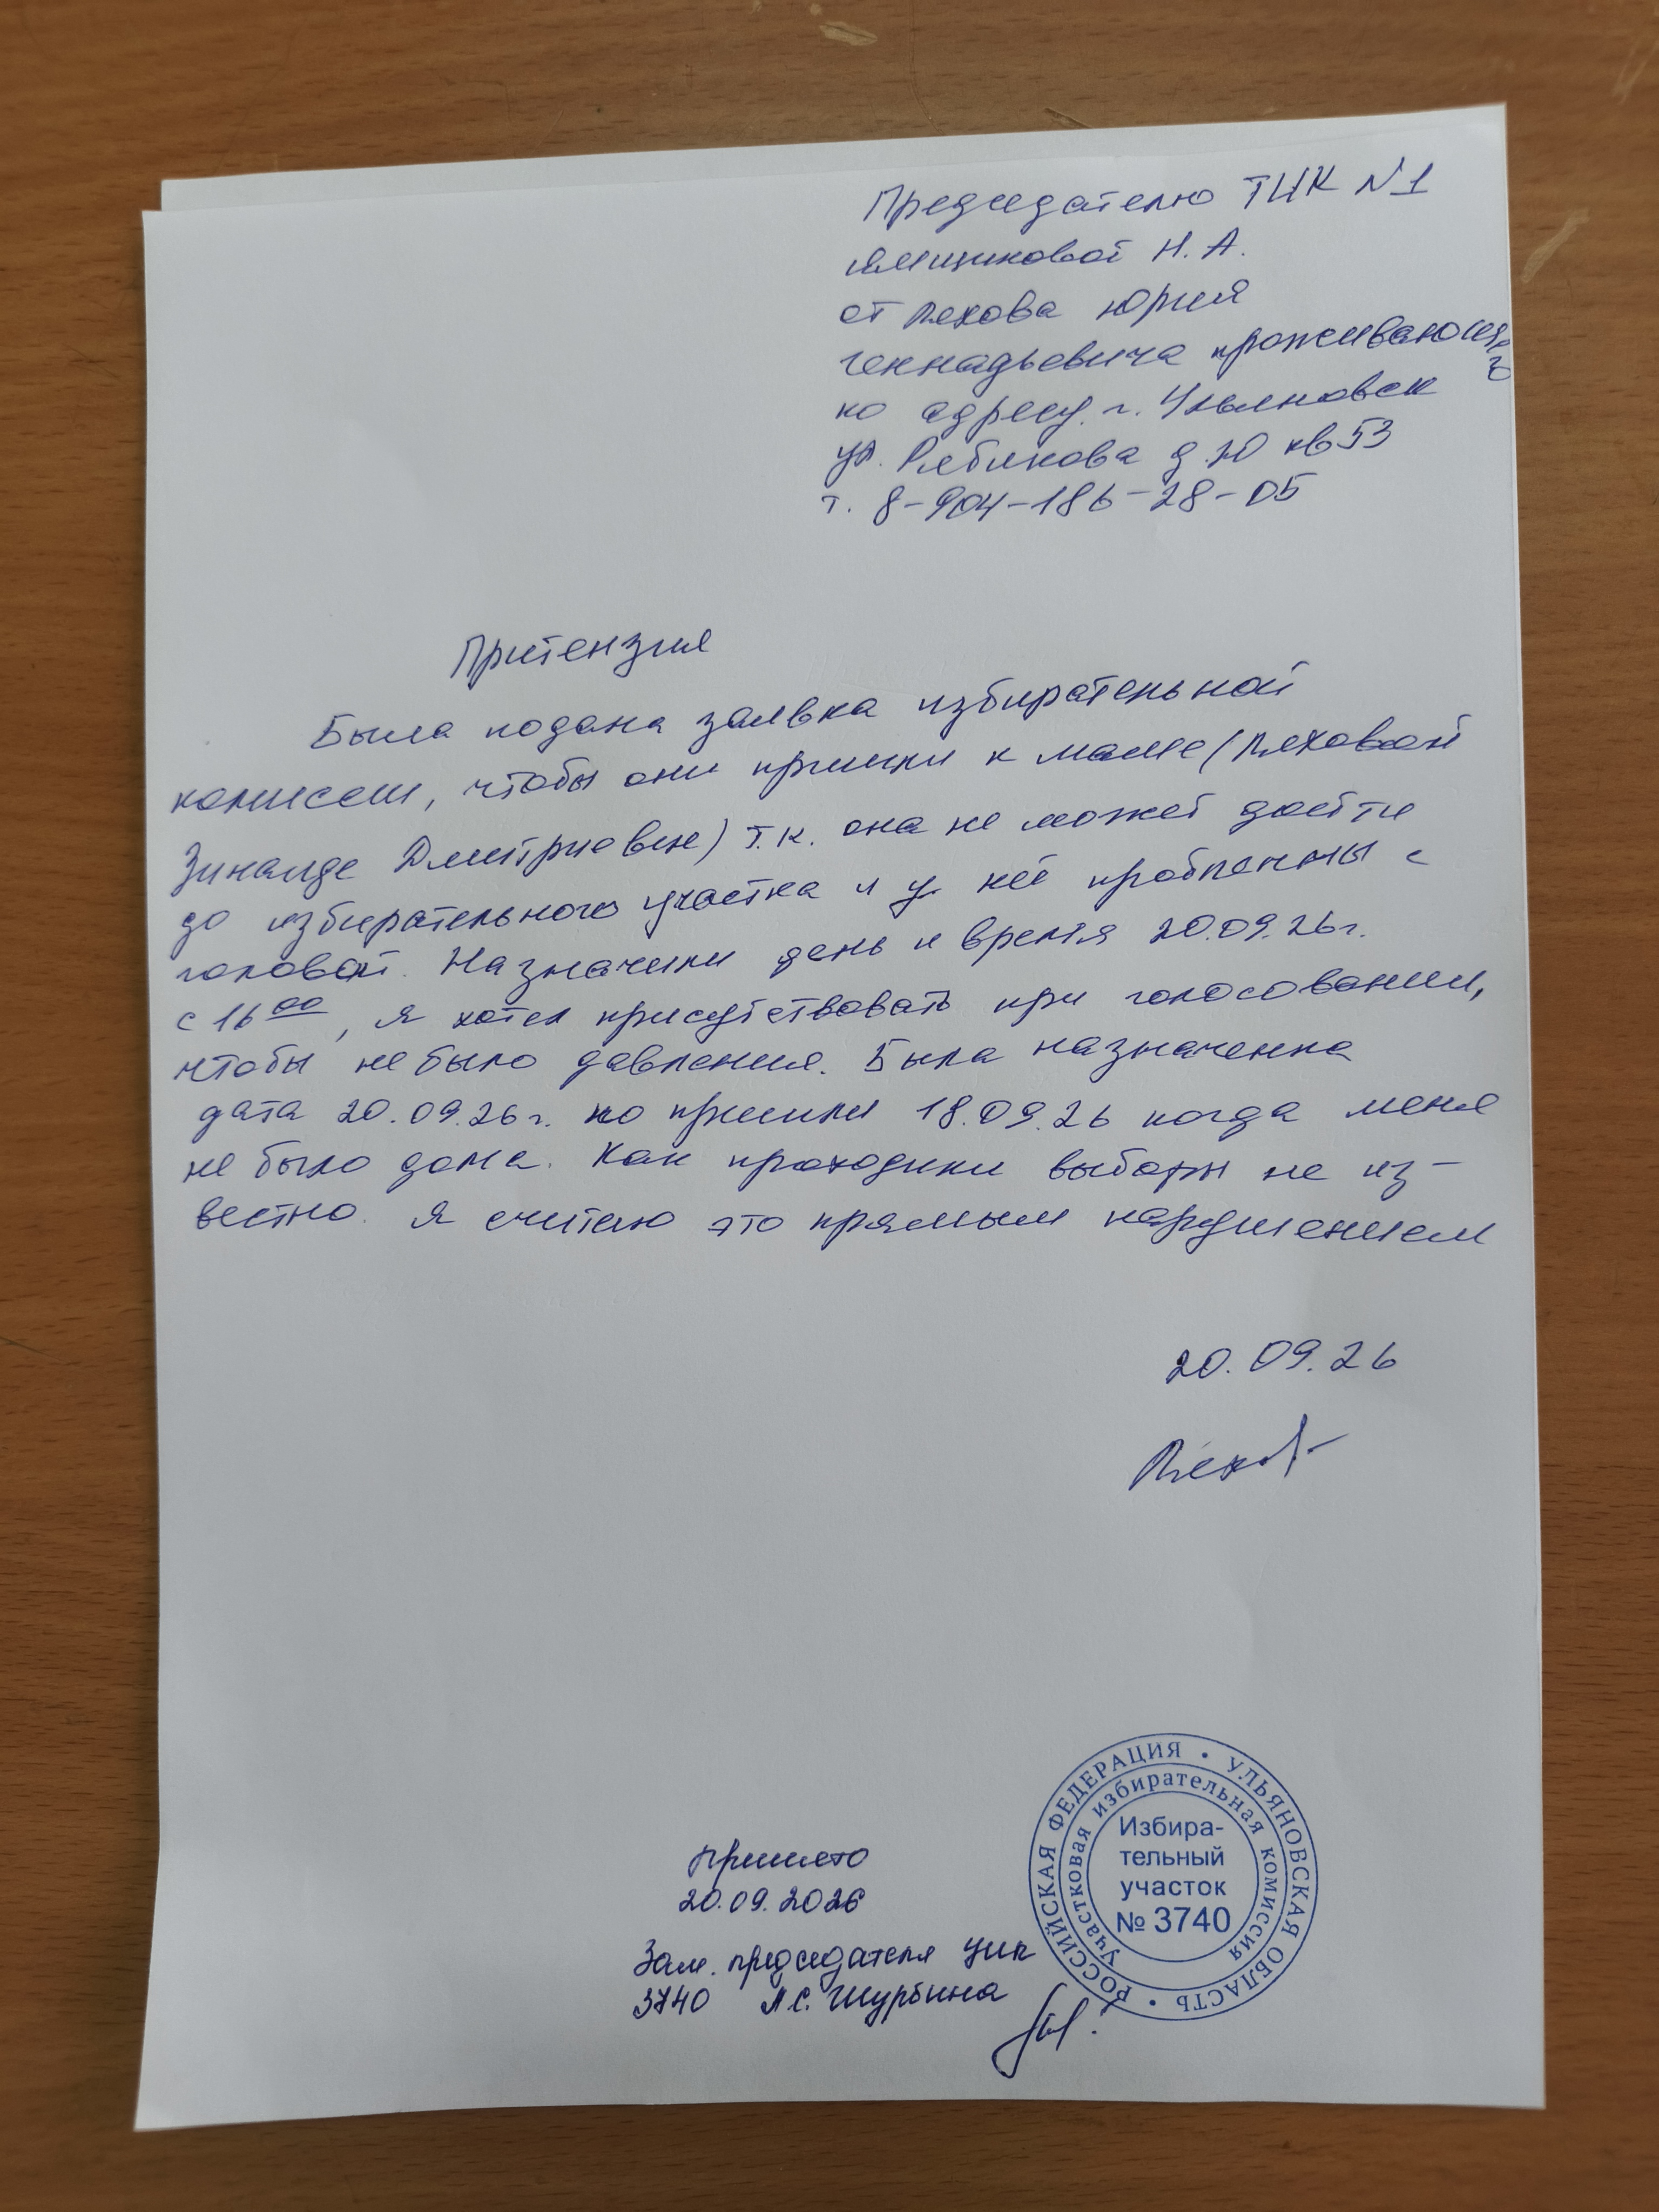 Председателю ТИК №1
Ямщиковой Н. А.
от Пехова Юрия
Геннадьевича проживающего
по адресу г. Ульяновск
ул. Рябикова д. 20 кв 53
т. 8-904-186-28-05
Притензия
Была подана заявка избирательной
комиссии, чтобы они пришли к маме (Пеховой
Зинаиде Дмитриевне) т.к. она не может дойти
до избирательного участка и у неё проблеммы с
головой. Назначили день и время 20.09.26г.
с 16 00, я хотел присутствовать при голосовании,
чтобы не было давления. Была назначенна
дата 20.09.26г. но пришли 18.09.26 когда меня
не было дома. Как проходили выборы не из-
вестно. Я считаю это прямым нарушением
20.09.26
Принято
20.09.2026
Зам. председателя УИК
3740 Л.С. Шурбина
РОССИЙСКАЯ ФЕДЕРАЦИЯ • УЛЬЯНОВСКАЯ ОБЛАСТЬ •
Участковая избирательная комиссия
Избира-
тельный
участок
№ 3740